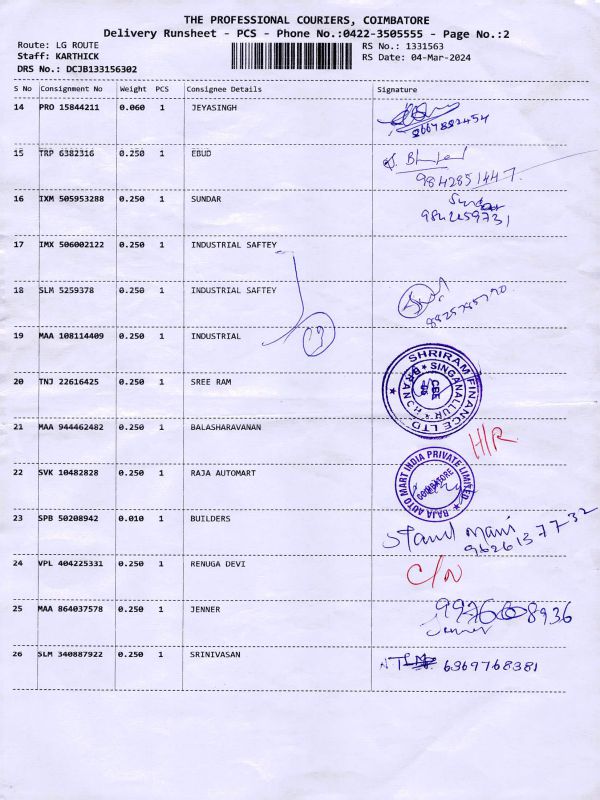 THE PROFESSIONAL COURIERS, COIMBATORE
Delivery Runsheet - PCS - Phone No.:0422-3505555 - Page No.:2
Route: LG ROUTE
Staff: KARTHICK
DRS No.: DCJB133156302
RS No.: 1331563
RS Date: 04-Mar-2024
S No Consignment No Weight PCS Consignee Details Signature
14 PRO 15844211 0.060 1 JEYASINGH
8667882454
15 TRP 6382316 0.250 1 EBUD
9842851447.
16 IXM 505953288 0.250 1 SUNDAR
9842459731
17 IMX 506002122 0.250 1 INDUSTRIAL SAFTEY
18 SLM 5259378 0.250 1 INDUSTRIAL SAFTEY
19 MAA 108114409 0.250 1 INDUSTRIAL
SHRIRAM FINANCE LTD
SINGANALLUR
20 TNJ 22616425 0.250 1 SREE RAM
21 MAA 944462482 0.250 1 BALASHARAVANAN
H/R
22 SVK 10482828 0.250 1 RAJA AUTOMART
RAJA AUTO MART INDIA PRIVATE LIMITED
COIMBATORE
23 SPB 50208942 0.010 1 BUILDERS
Mani
9626137732
24 VPL 404225331 0.250 1 RENUGA DEVI
C/N
25 MAA 864037578 0.250 1 JENNER
Jenner
26 SLM 340887922 0.250 1 SRINIVASAN
6369768381